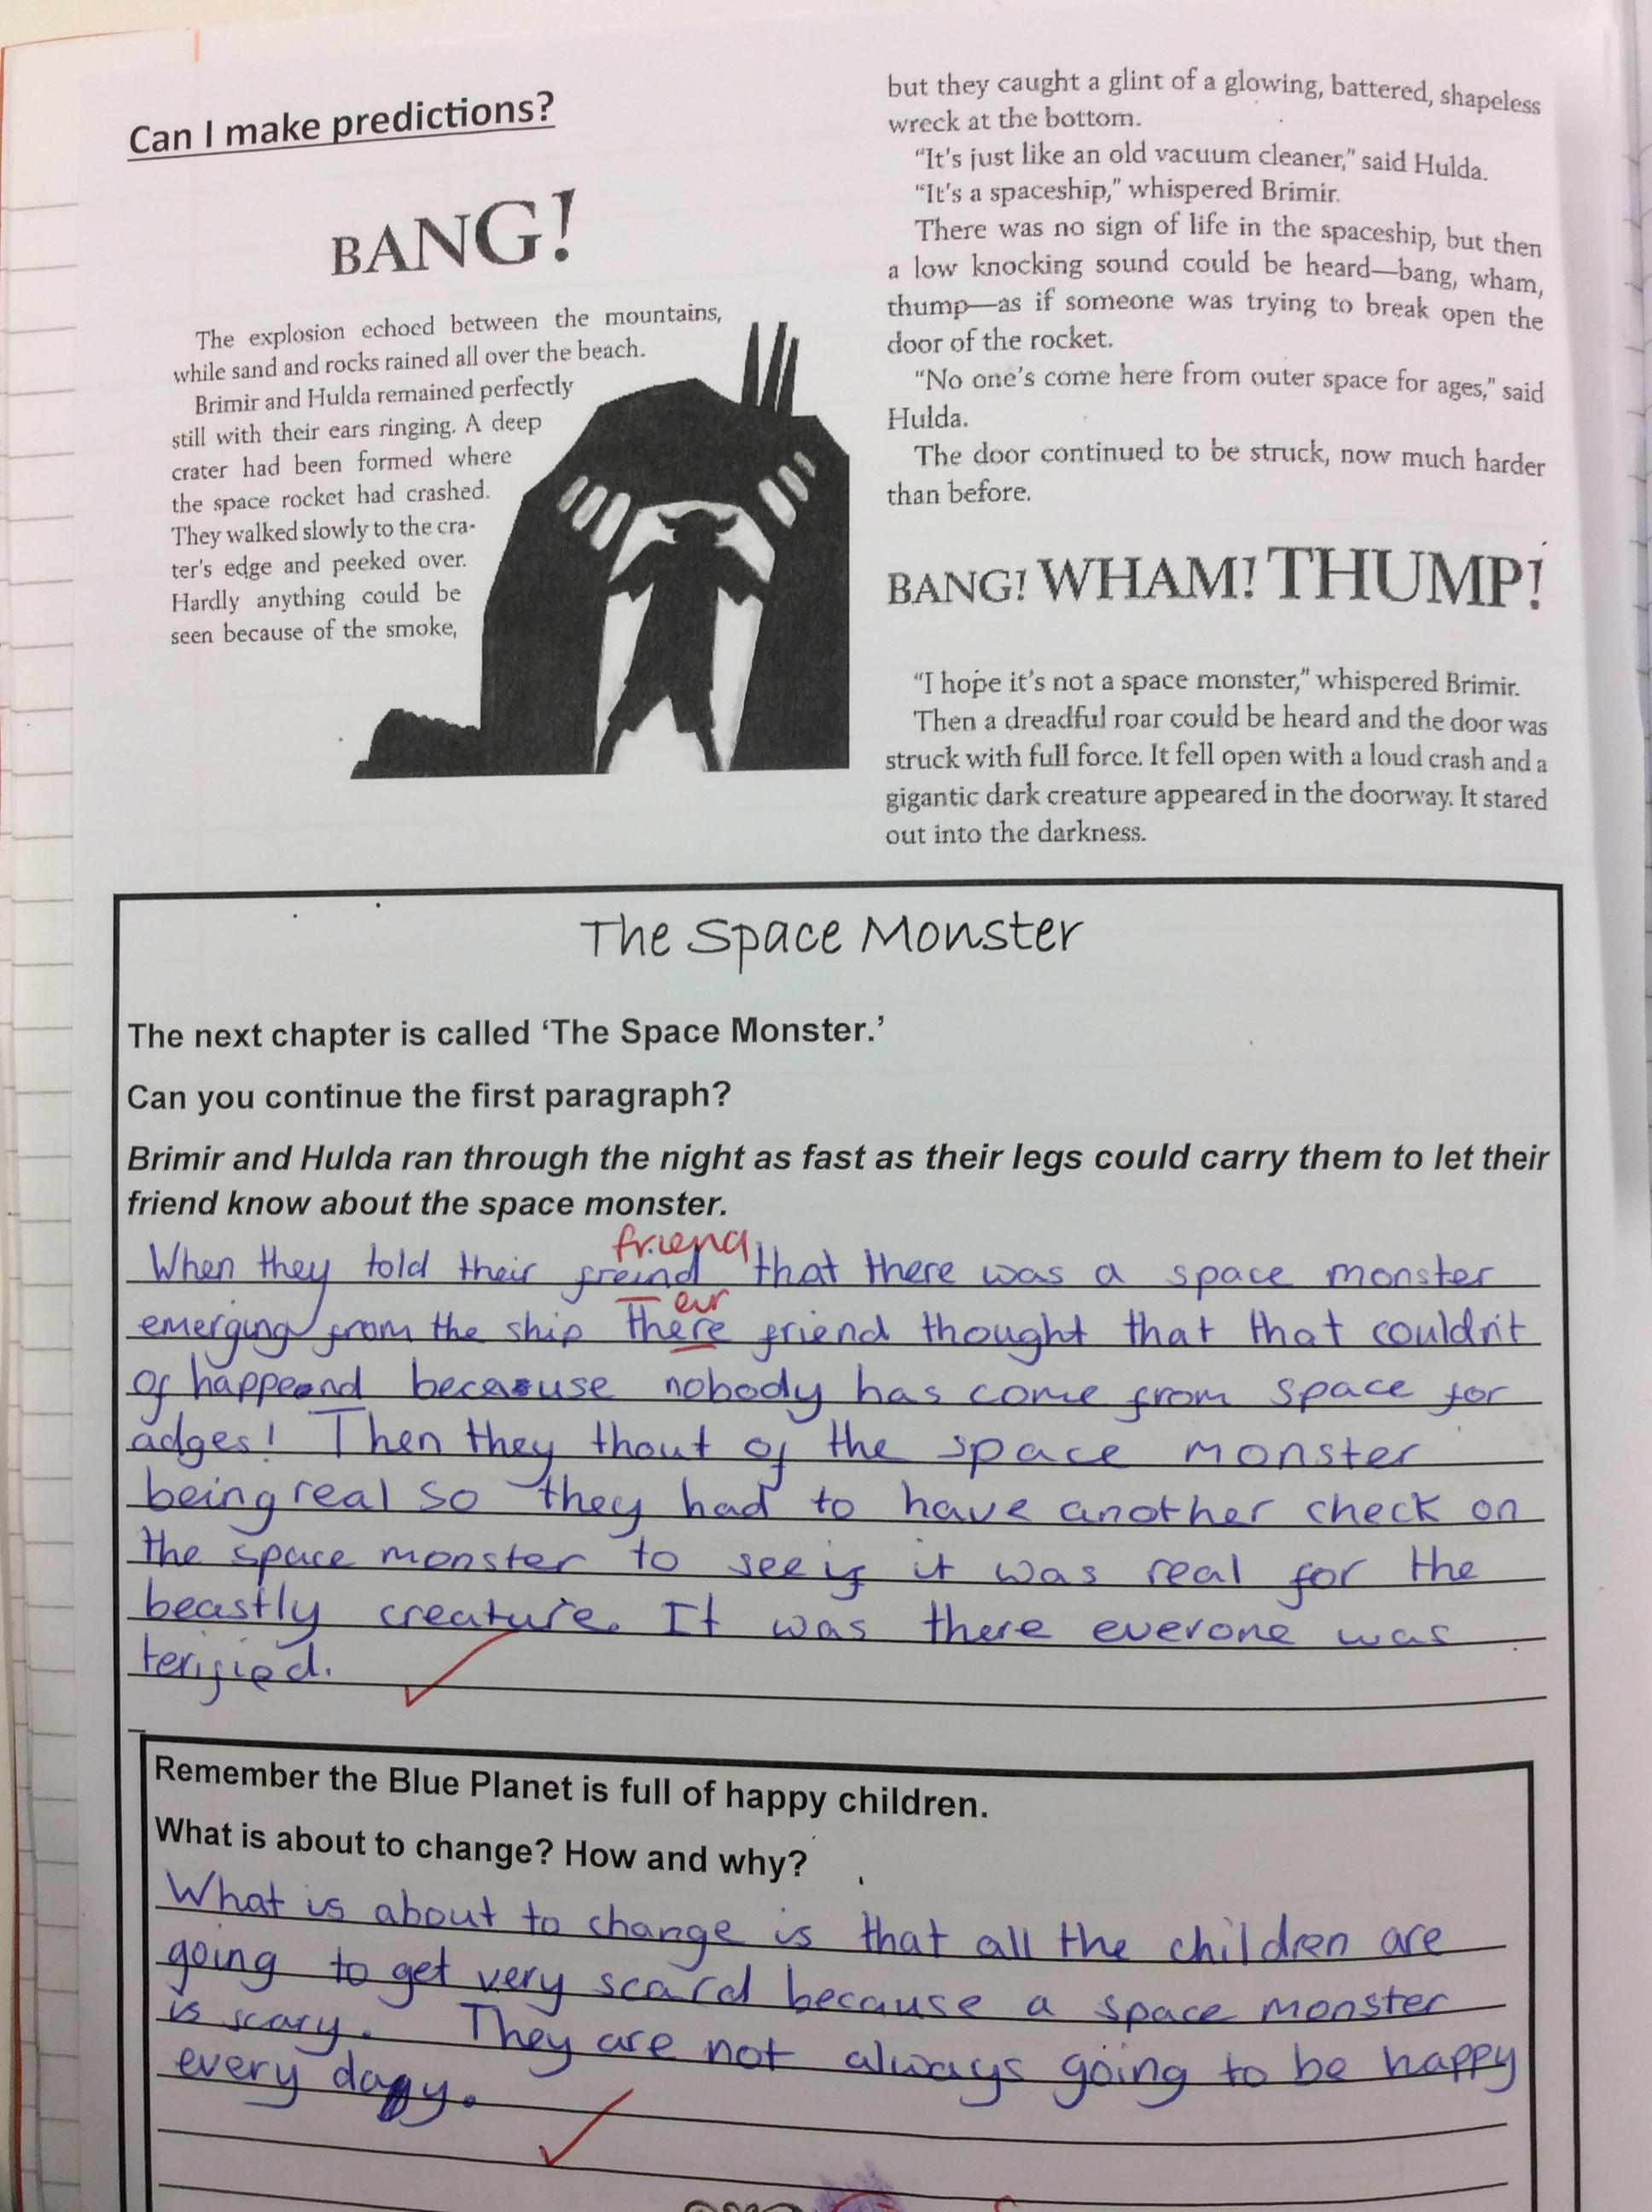 Can I make predictions?
BANG!
The explosion echoed between the mountains,
while sand and rocks rained all over the beach.
Brimir and Hulda remained perfectly
still with their ears ringing. A deep
crater had been formed where
the space rocket had crashed.
They walked slowly to the cra-
ter's edge and peeked over.
Hardly anything could be
seen because of the smoke,
but they caught a glint of a glowing, battered, shapeless
wreck at the bottom.
“It's just like an old vacuum cleaner,” said Hulda.
“It's a spaceship,” whispered Brimir.
There was no sign of life in the spaceship, but then
a low knocking sound could be heard—bang, wham,
thump—as if someone was trying to break open the
door of the rocket.
“No one's come here from outer space for ages,” said
Hulda.
The door continued to be struck, now much harder
than before.
BANG! WHAM! THUMP!
“I hope it's not a space monster,” whispered Brimir.
Then a dreadful roar could be heard and the door was
struck with full force. It fell open with a loud crash and a
gigantic dark creature appeared in the doorway. It stared
out into the darkness.
The Space Monster
The next chapter is called ‘The Space Monster.’
Can you continue the first paragraph?
Brimir and Hulda ran through the night as fast as their legs could carry them to let their
friend know about the space monster.
friend
When they told their freind that there was a space monster
eir
emerging from the ship there friend thought that that couldn't
of happend because nobody has come from space for
adges! Then they thout of the space monster
being real so they had to have another check on
the space monster to see if it was real for the
beastly creature. It was there everone was
terified.
Remember the Blue Planet is full of happy children.
What is about to change? How and why?
What is about to change is that all the children are
going to get very scard because a space monster
is scary. They are not always going to be happy
every day.